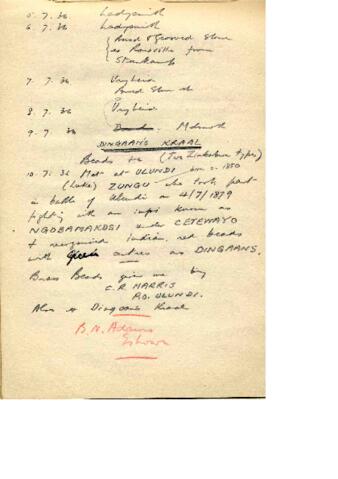 5.7.36 Ladysmith
6.7.36 Ladysmith
Bored & Grooved Stone
ex Roosville from
7.7.36 Vryheid
Bored Stone
8.7.36 Vryheid
9.7.36 Melmoth
DINGAAN'S KRAAL
Beads etc (Two Zimbabwe types)
10.7.36 Met at ULUNDI
(Luke) ZUNGU who took part
in battle of Ulundi on 4/7/1879
fighting with an impi known as
NGOBAMAKOSI under CETEWAYO
& recognised Indian red beads
with green centres as DINGAANS.
Brass Beads given me by
C.R. HARRIS
P.O. ULUNDI.
Also at Dingaans Kraal
B.N. Adams
Eshowe